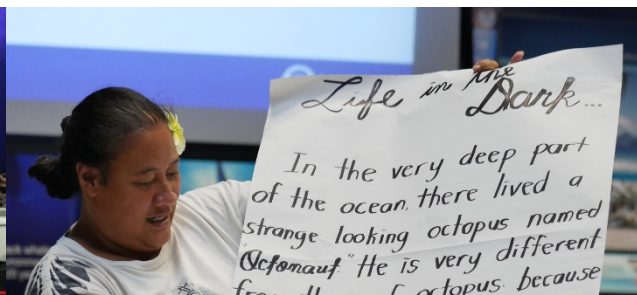 Life in the Dark...
In the very deep part
of the ocean, there lived a
strange looking octopus named
"Octonaut." He is very different
of octopus because